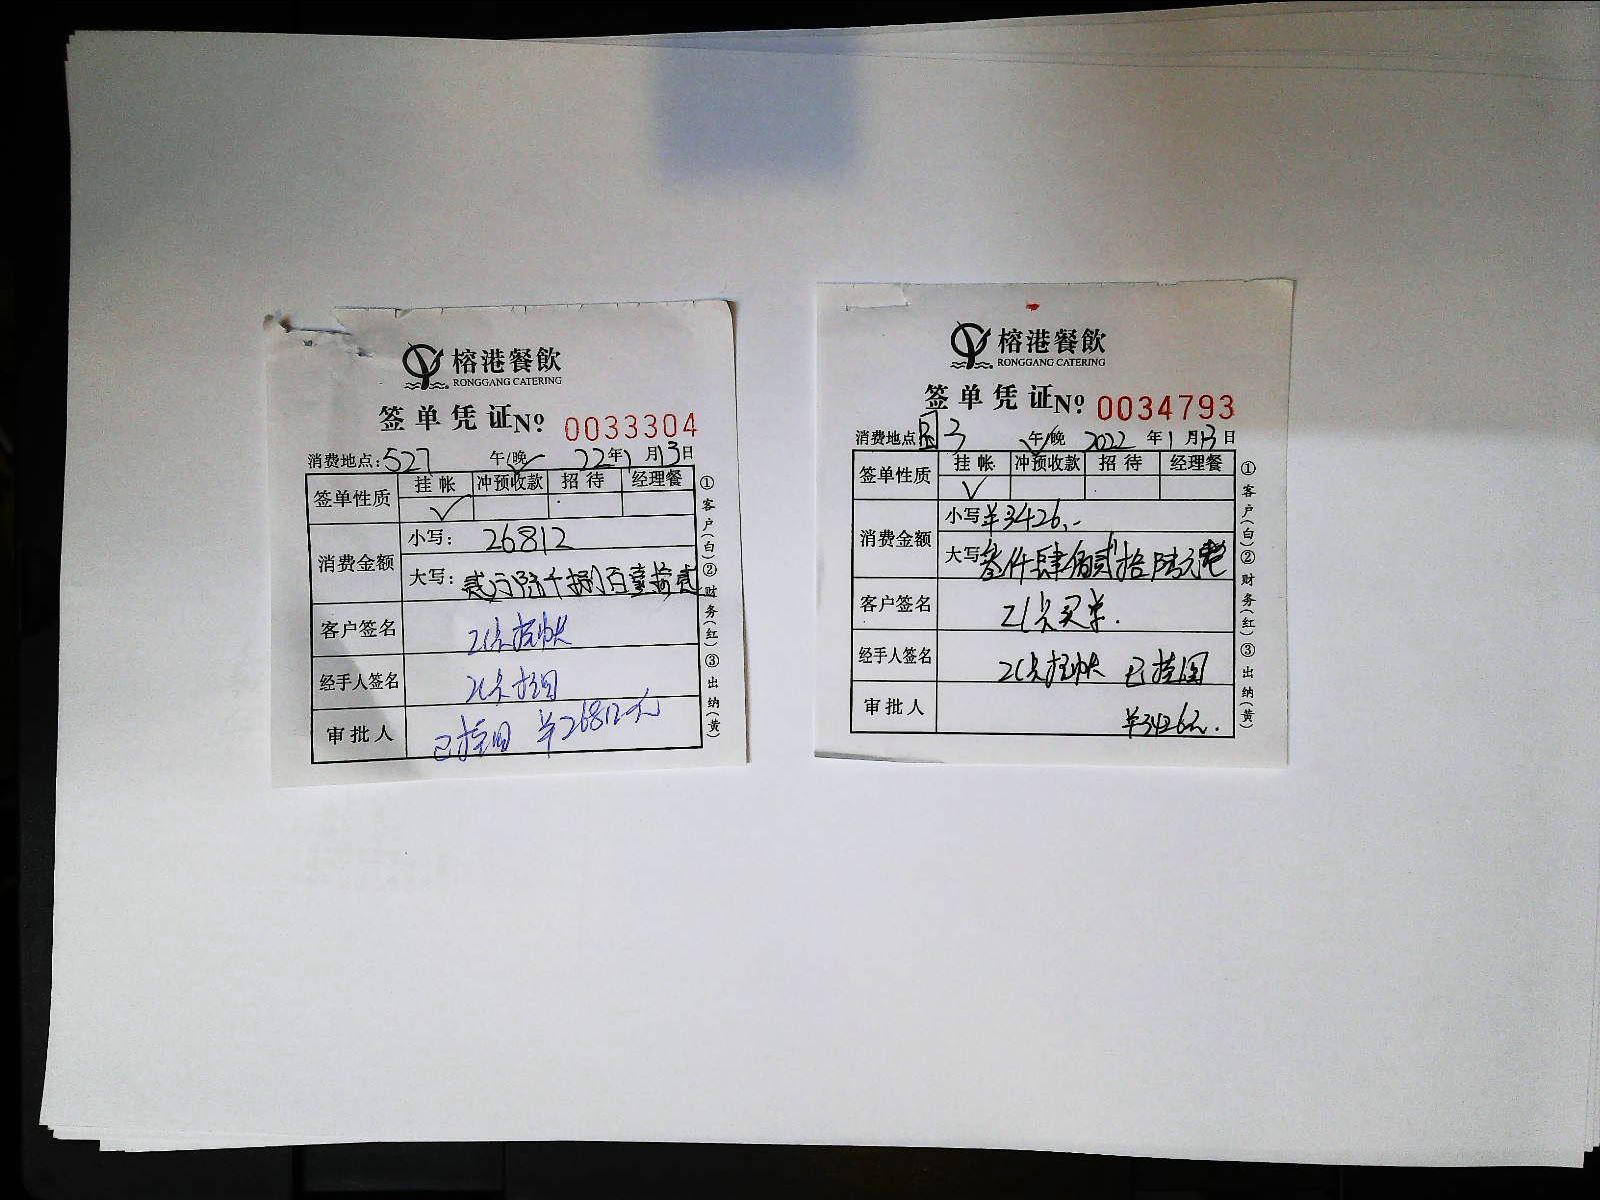 榕港餐飲
RONGGANG CATERING
签单凭证 Nº 0033304
消费地点: 527 午/晚 22年1月13日
签单性质 挂帐 冲预收款 招待 经理餐
✓
消费金额 小写: 26812
大写: 贰万陆千捌百壹拾贰
客户签名 挂帐
经手人签名
审批人 已挂 ¥26812元
①客户(白)②财务(红)③出纳(黄)
榕港餐飲
RONGGANG CATERING
签单凭证 Nº 0034793
消费地点 3 午/晚 2022年1月13日
签单性质 挂帐 冲预收款 招待 经理餐
✓
消费金额 小写 ¥3426.-
大写 叁仟肆佰贰拾陆元
客户签名 买单.
经手人签名 挂帐 已挂
审批人 ¥3426元.
①客户(白)②财务(红)③出纳(黄)